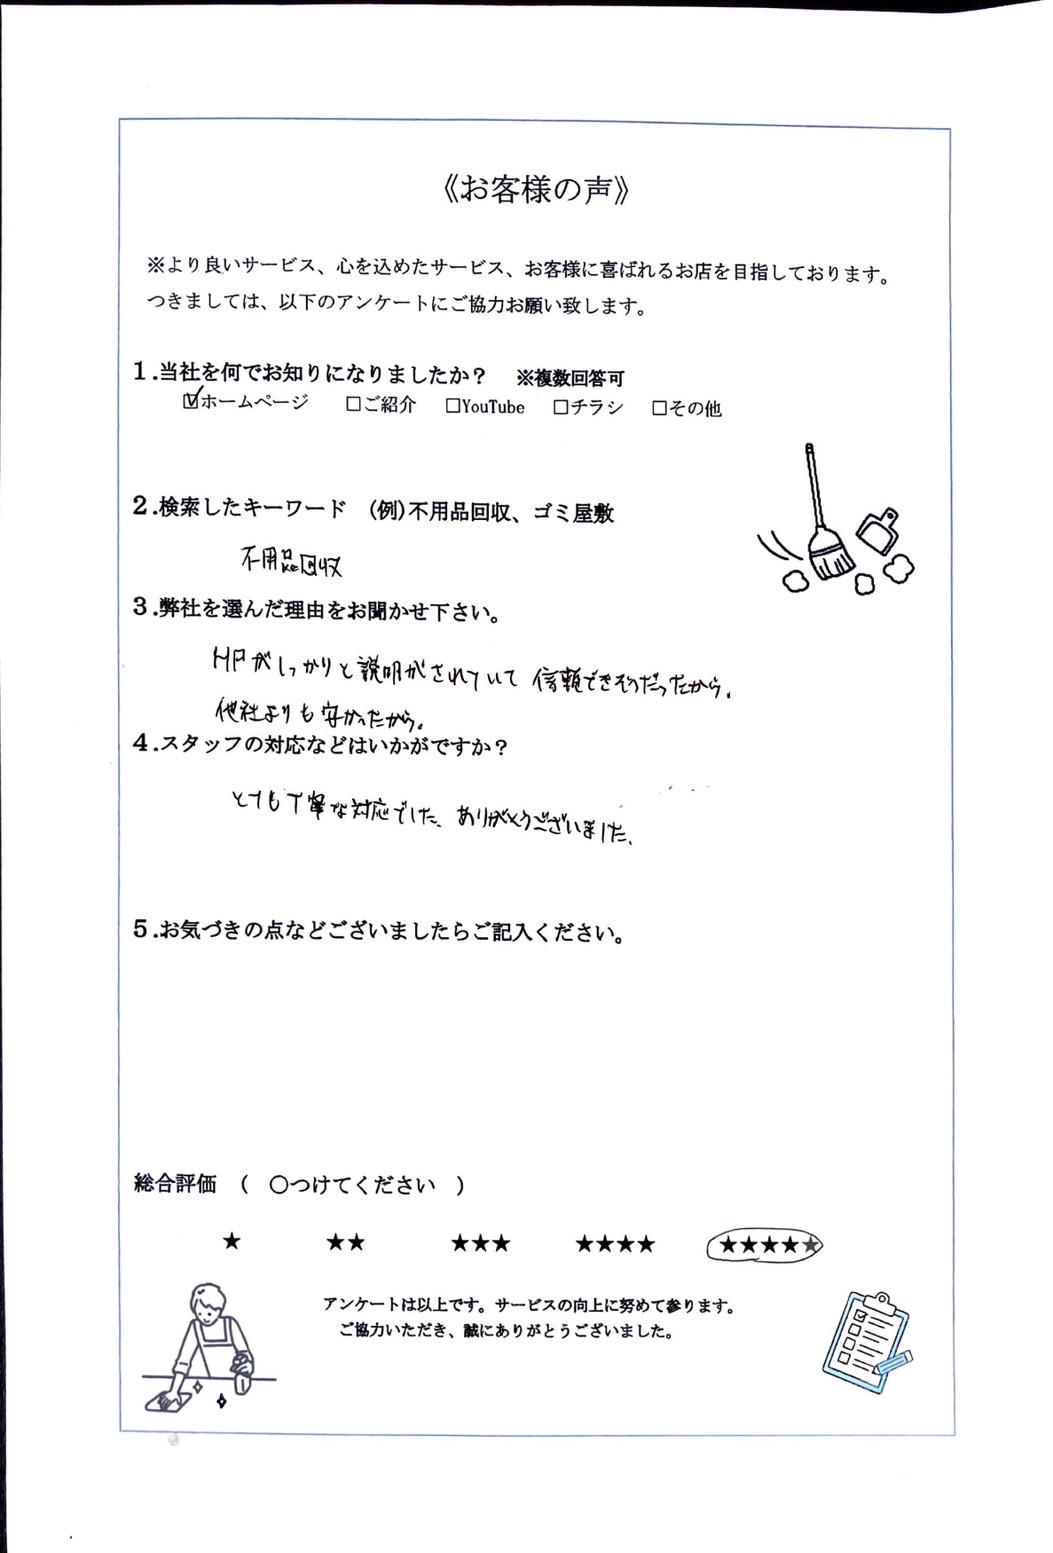 《お客様の声》
※より良いサービス、心を込めたサービス、お客様に喜ばれるお店を目指しております。
つきましては、以下のアンケートにご協力お願い致します。
1.当社を何でお知りになりましたか？　※複数回答可
☑ホームページ　□ご紹介　□YouTube　□チラシ　□その他
2.検索したキーワード　(例)不用品回収、ゴミ屋敷
不用品回収
3.弊社を選んだ理由をお聞かせ下さい。
HPがしっかりと説明がされていて信頼できそうだったから。
他社よりも安かったから。
4.スタッフの対応などはいかがですか？
とても丁寧な対応でした、ありがとうございました、
5.お気づきの点などございましたらご記入ください。
総合評価　(　○つけてください　)
★　★★　★★★　★★★★　★★★★★
アンケートは以上です。サービスの向上に努めて参ります。
ご協力いただき、誠にありがとうございました。